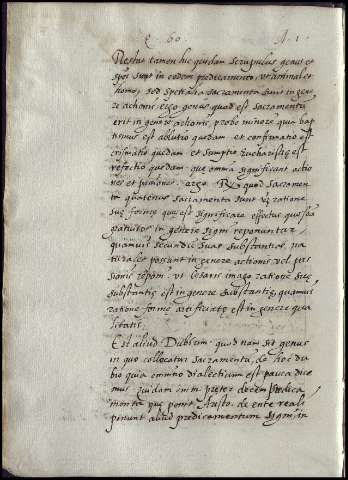 Q. 60. A. 1.
Restat tamen hic quidam scrupulus genus et
spēs sunt in eodem predicamento, ut animal et
homo, sed specialia sacramenta sunt in gene
re actionis, ergo genus quod est sacramentū
erit in genere actionis, probo minorē quia bap
tismus est ablutio quedam et confirmatio est
crismatio quedam et sumptio eucharistię est
refectio quedam, que omnia significant actio
nes et passiones. ergo. Rx quod sacramen
ta quatenus sacramenta sunt ratione
suę formę quę est significare effectus
in genere signi reponuntur,
quamuis secundū suas substantias, na
turales possint in genere actionis vel pas
sionis reponi. ut Cesaris imago ratione suę
substantię est in genere substantię, quamuis
ratione formę artificiatę est in genere qua
litatis.
Est aliud Dubium. quod nam sit genus
in quo collocatur sacramentū, de hoc du
bio quia omnino dialecticum est pauca dice
mus quidam enim preter decem predica
menta que ponit Aristo. de ente reali
ponunt aliud predicamentum signi, in